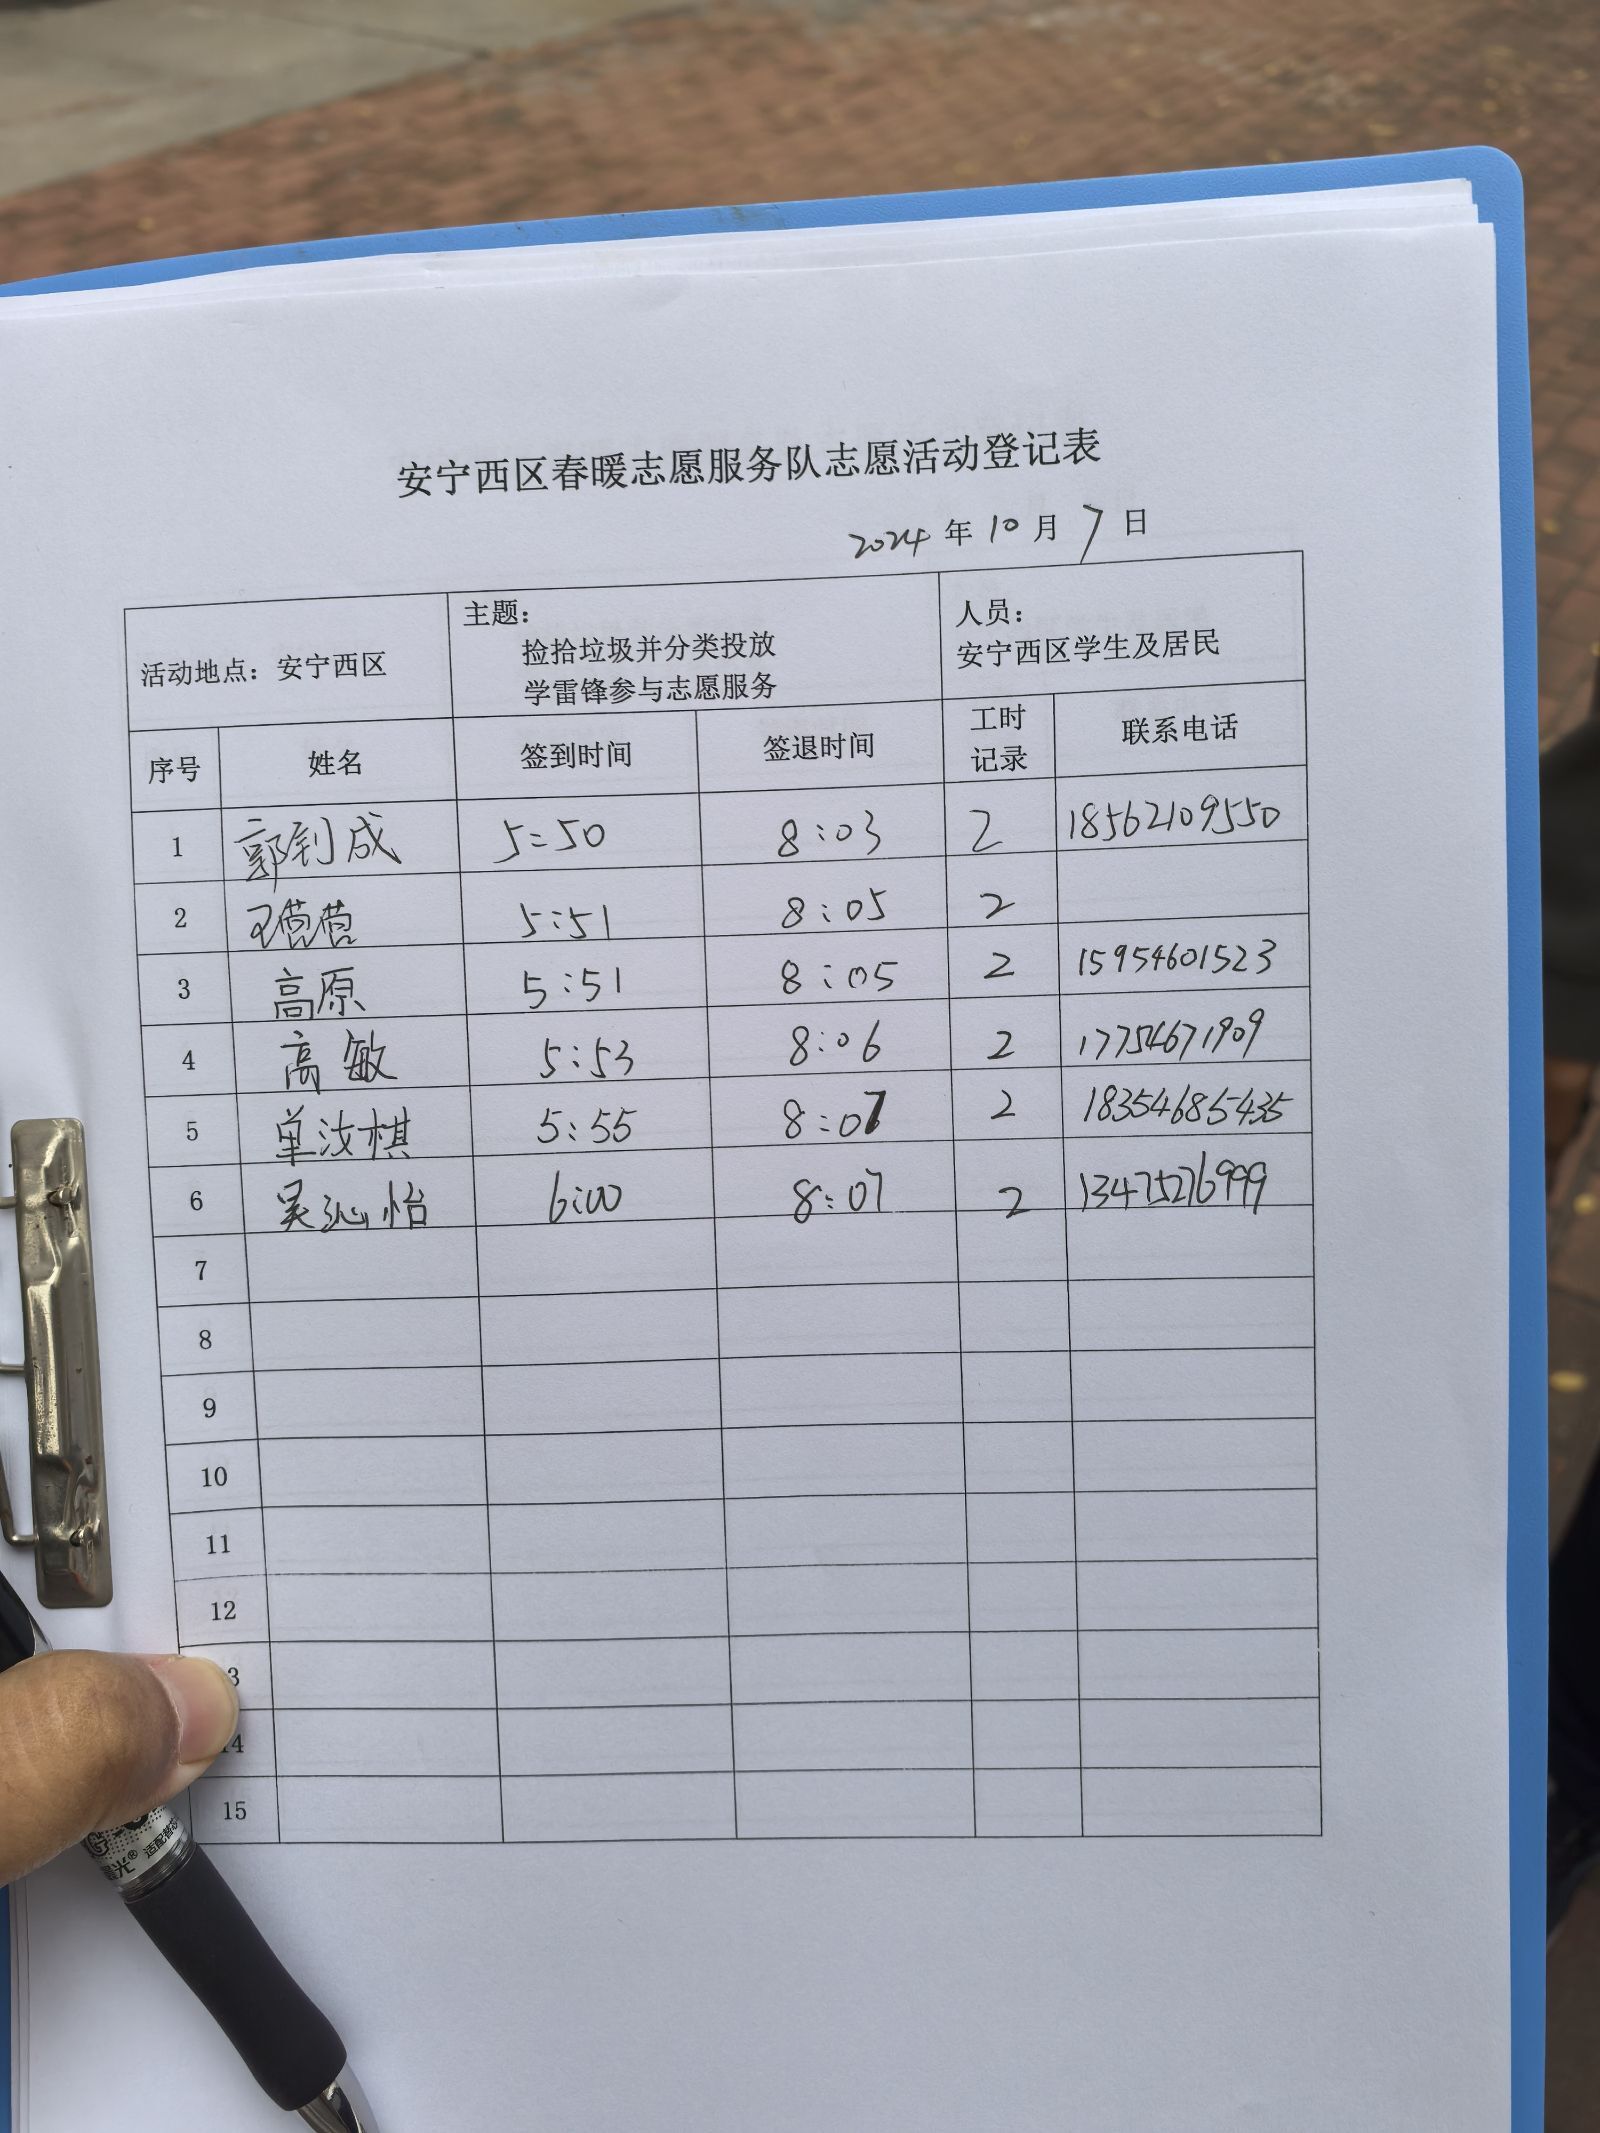 安宁西区春暖志愿服务队志愿活动登记表
2024 年 10 月 7 日
活动地点：安宁西区
主题：
捡拾垃圾并分类投放
学雷锋参与志愿服务
人员：
安宁西区学生及居民
序号 姓名 签到时间 签退时间 工时记录 联系电话
1 郭到成 5:50 8:03 2 18562109550
2 5:51 8:05 2
3 高原 5:51 8:05 2 15954601523
4 高敏 5:53 8:06 2 17754671909
5 单汝棋 5:55 8:07 2 18354685435
6 吴沁怡 6:00 8:07 2 13475276999
7
8
9
10
11
12
3
14
15
适配替芯